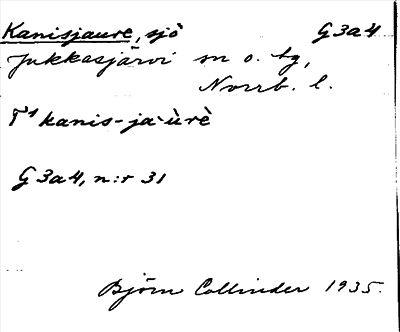 Kanisjaure, sjö G3a4
Jukkasjärvi sn o. tg,
Norrb. l.
kanis-ja·ùrè
G3a4, n:r 31
Björn Collinder 1935.